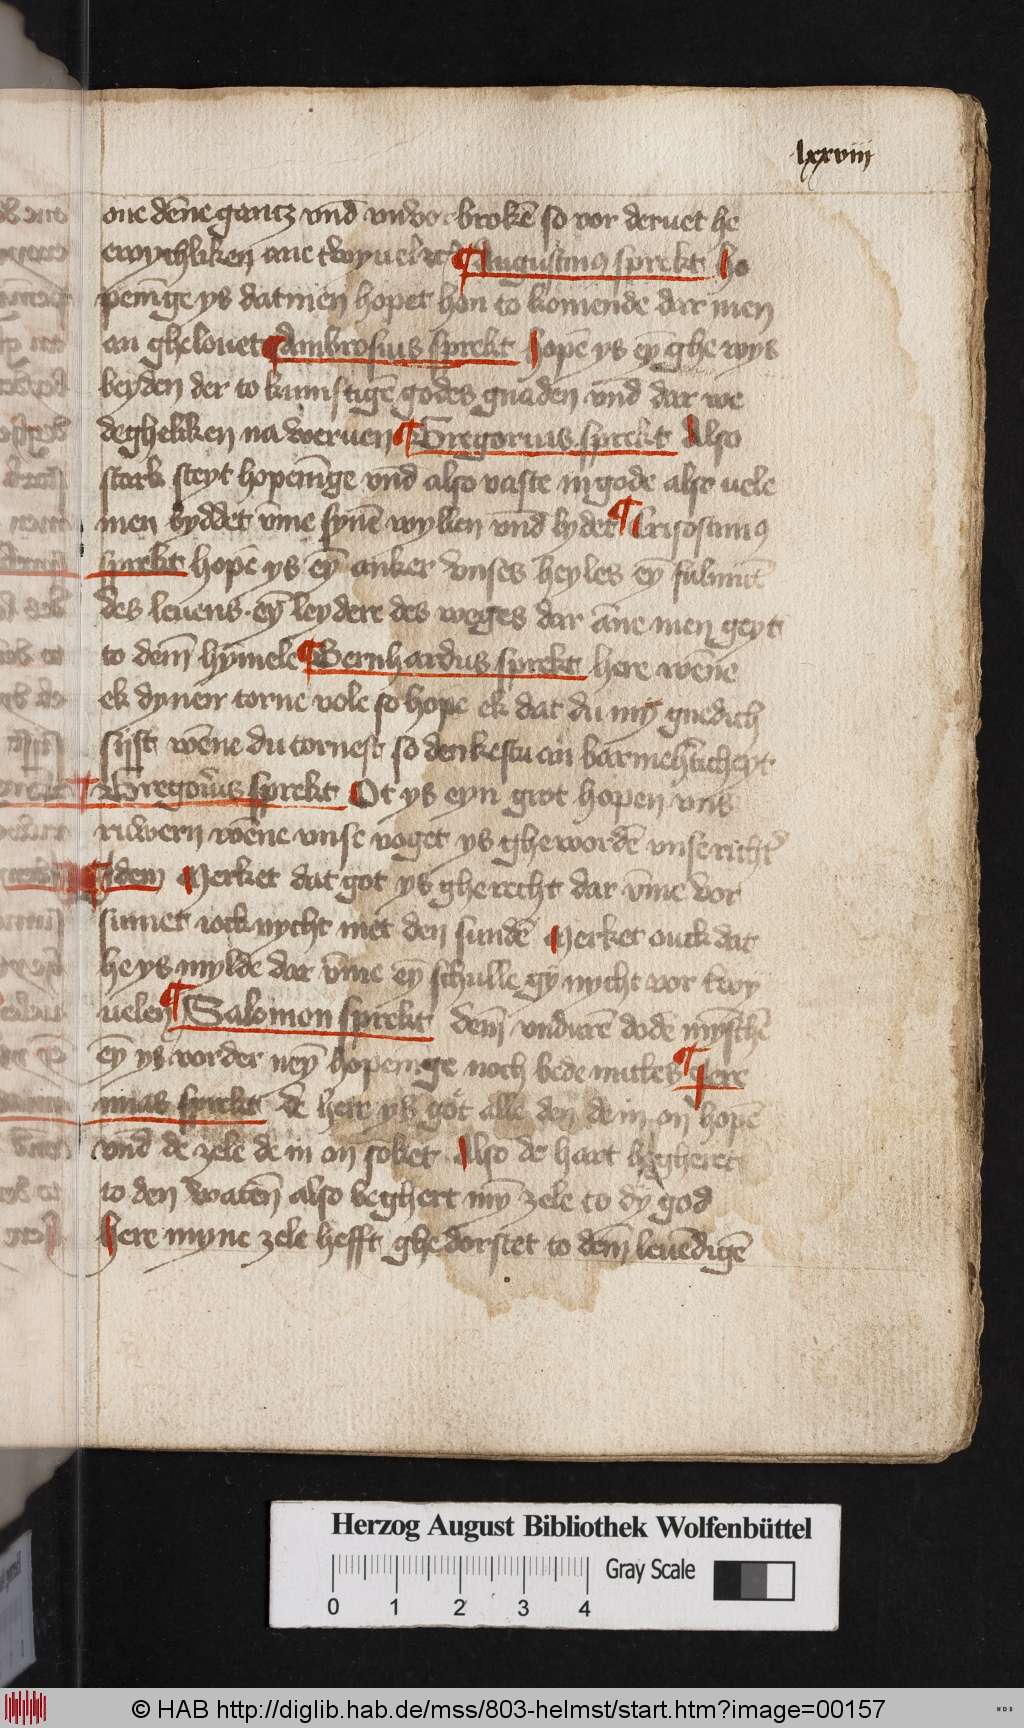 lxxviii
one dēne gantz vnd vnvorbrokē so vor deruet he
ewychliken ane twyuel ¶ Augustinus sprekt Ho
penīge ys dat men hopet hen to komende dar men
an ghelouet ¶ Ambrosius sprekt hopē ys eȳ ghe wys
beyden der to kumstigē godes gnaden vnd dar we
degheliken na weruen ¶ Gregorius sprekt Also
stark steyt hopenīge vnd also vaste in gode also uele
men byddet vm̄e synē wyllen vnd lydet ¶ Crisostimus
sprekt hopē ys eȳ anker vnses heyles eȳ
des leuens · eȳ leydere des weges dar āne men geyt
to dem̄ hymele ¶ Bernhardus sprekt here wēne
ek dynen torne vole so hope ek dat du my gnedich
sijst wēne du tornest so denkestu an barmeh'ticheyt
¶ Gregori'us sprekt Ot ys eyn grot hopen vns
ruwern wēne vnse voget ys ghewordē vnse richt'
¶ Idem Merket dat got ys gherecht dar vm̄e vor
sumet iock nycht met den sundē Merket ouck dat
he ys mylde dar vm̄e eȳ schulle gy nycht vor twy
uelen ¶ Salomon sprekt dem̄ vndurē dode mīschē
eȳ ys vorder neȳ hopeninge noch bede nuttes ¶ Jere
mias sprekt de here ys got alle den de in on hopē
vnd de zele de in on soket Also de hart begheret
to den watēn also beghert mȳ zele to dy god
here myne zele hefft ghe dorstet to dem̄ leuēdigē
Herzog August Bibliothek Wolfenbüttel
Gray Scale
0 1 2 3 4
© HAB http://diglib.hab.de/mss/803-helmst/start.htm?image=00157